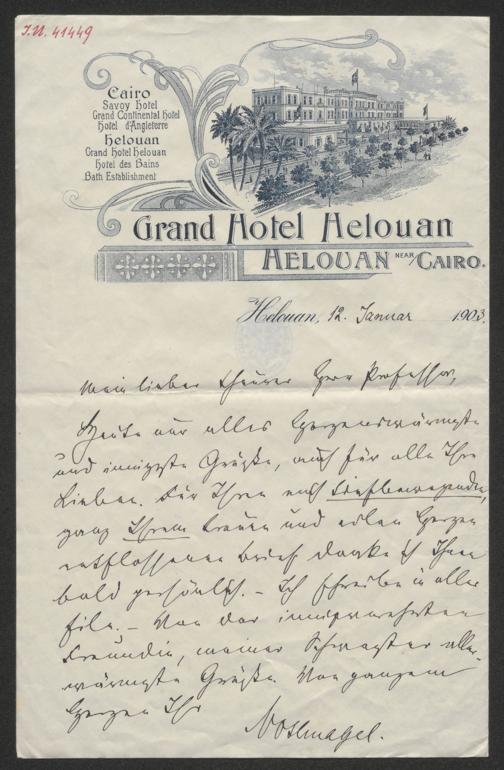 J.N. 41449
Cairo
Savoy Hotel
Grand Continental Hotel
Hotel d'Angleterre
Helouan
Grand Hotel Helouan
Hotel des Bains
Bath Establishment
Grand Hotel Helouan
HELOUAN NEAR/CAIRO.
Helouan, 12. Januar 1903.
Mein lieber theurer Herr Professor,
Heute nur alles Herzenswärmste
und innigste Grüße, auch für alle Ihre
Lieben. Für Ihren mich tiefbewegenden,
ganz Ihrem treuen und edlen Herzen
entflossenen Brief danke ich Ihnen
bald persönlich. – Ich schreibe in aller
Eile. – Von der innigverehrten
Freundin, meiner Schwester aller-
wärmste Grüße. Von ganzem
Herzen Ihr
Nothnagel.